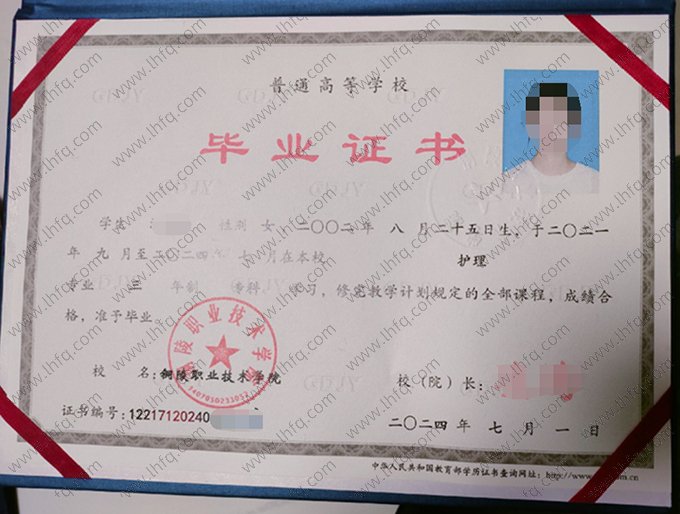 普通高等学校
毕业证书
学生 性别 女, 二〇〇二年 八 月二十五日生, 于二〇二一
年 九 月至二〇二四年 七 月在本校 护理
专业 三 年制 专科 学习, 修完教学计划规定的全部课程, 成绩合
格, 准予毕业。
铜陵职业技术学院
3407050233052
校 名: 铜陵职业技术学院 校 (院) 长:
证书编号: 12217120240
二〇二四 年 七 月 一 日
中华人民共和国教育部学历证书查询网址: http://www.
www.lhfq.com